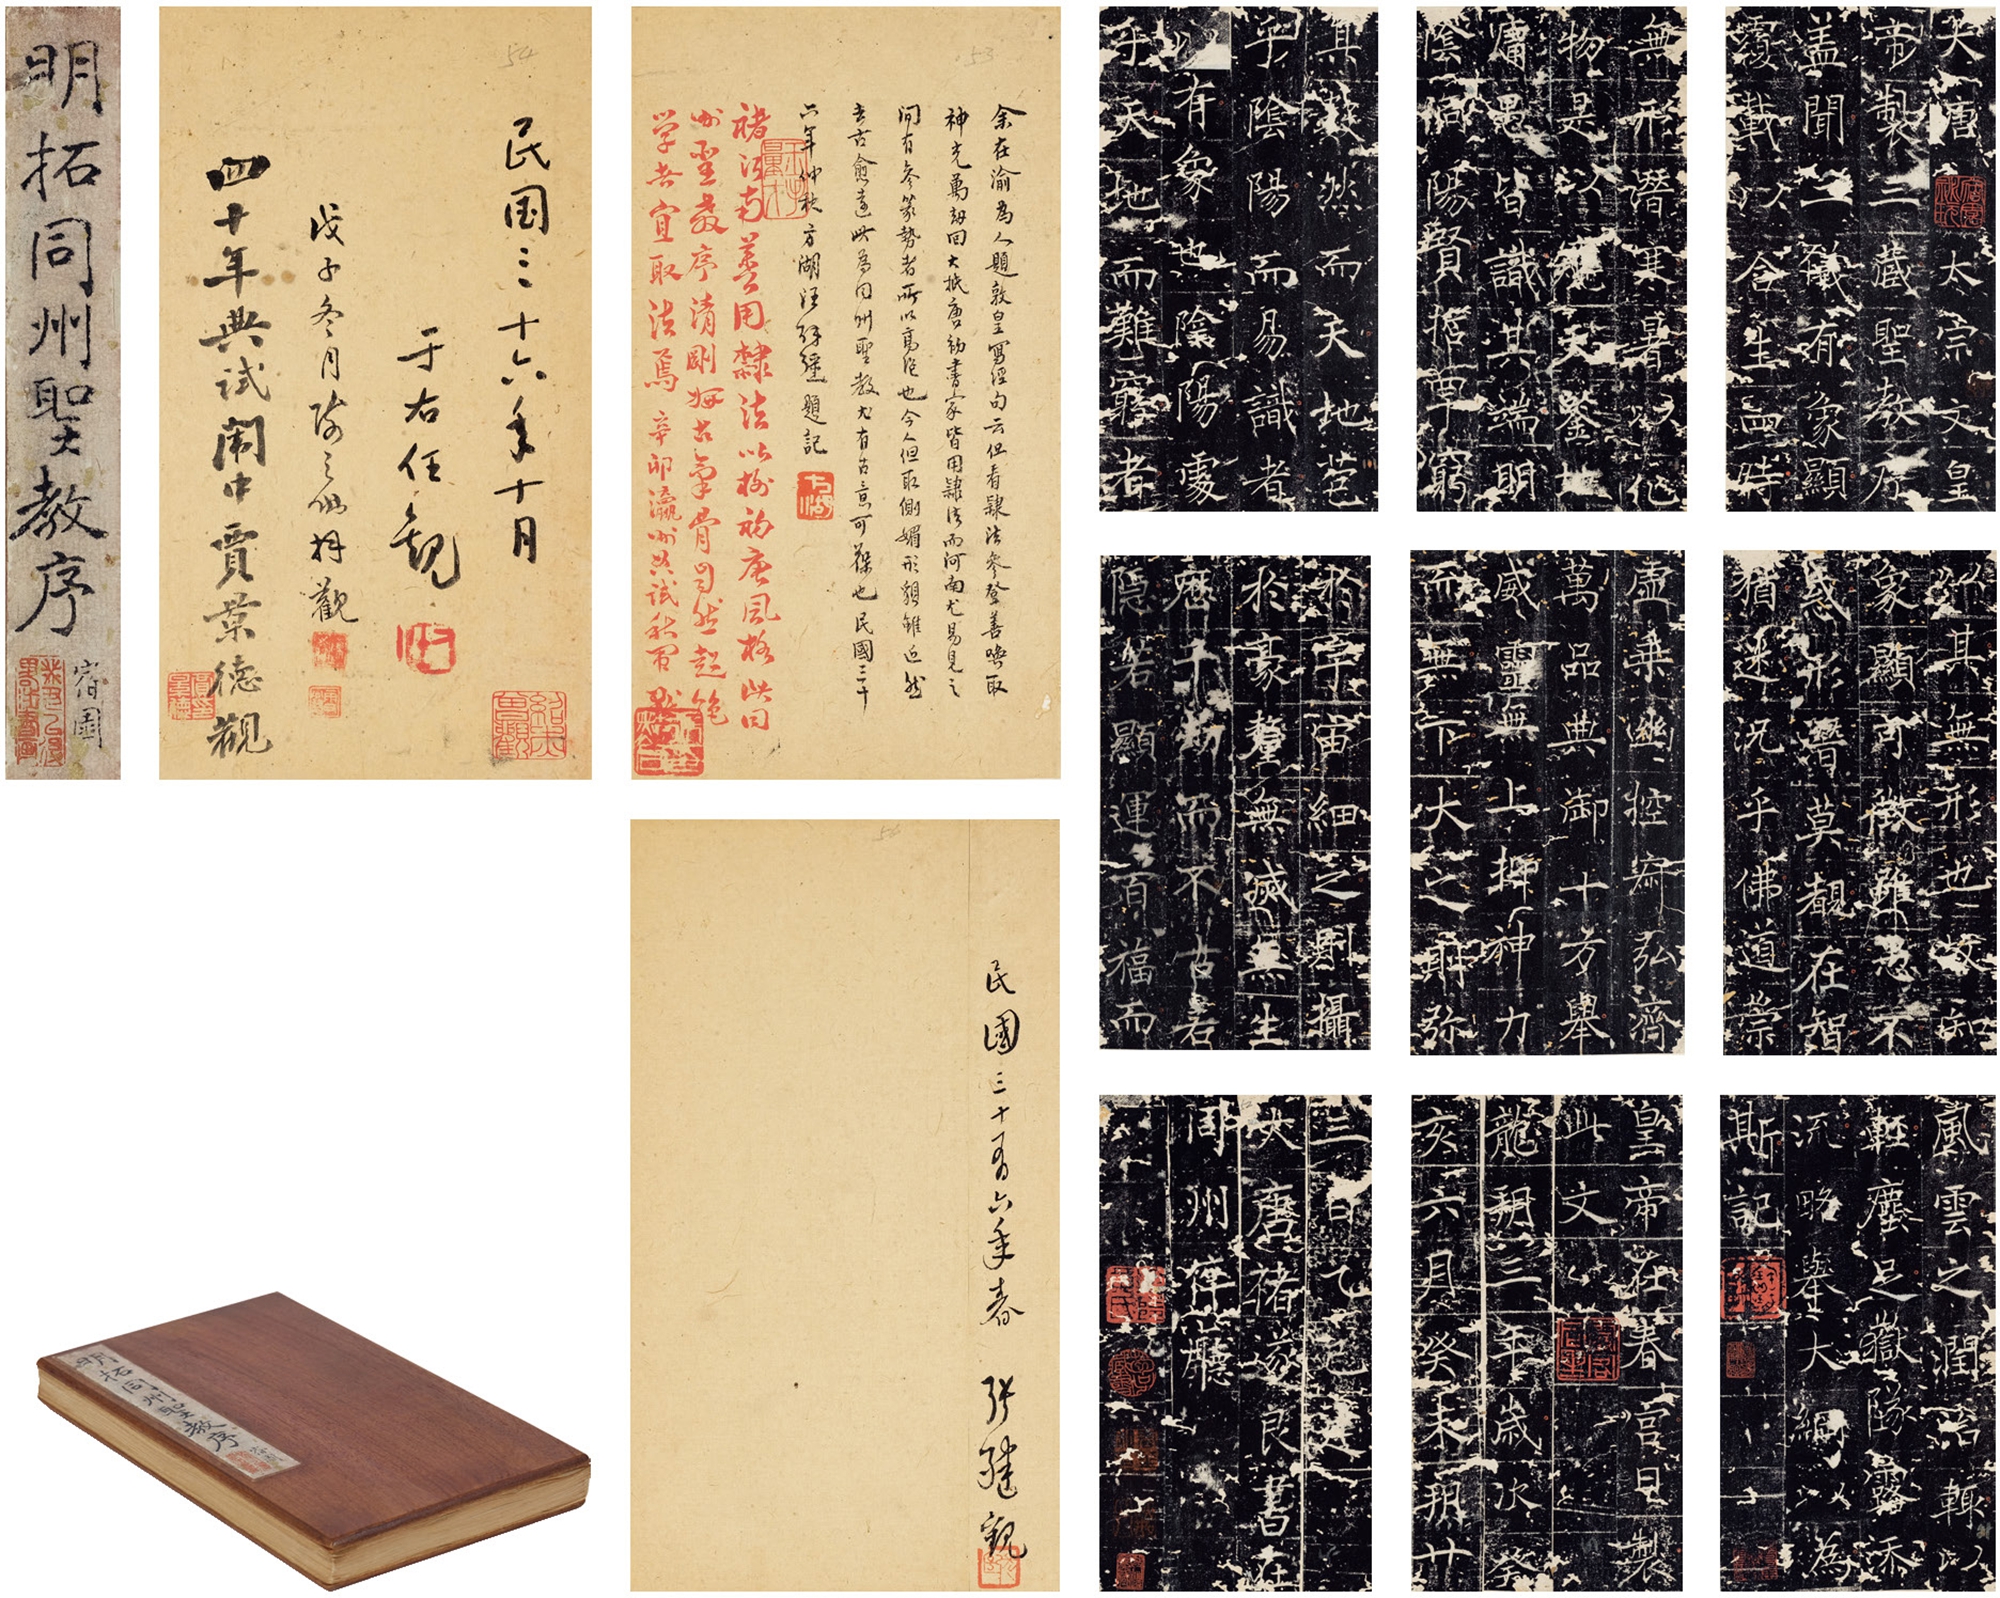 明拓同州聖教序
宿園
54
民国三十六年十月
于右任觀
戊子冬月
觀
四十年典試闈中賈景德觀
53
余在渝為人題敦皇寫經句云但看隸法參登善喚取
神光萬劫回大抵唐初書家皆用隸法而河南尤易見之
間有參篆勢者所以高絕也今人但取側媚形貌雖近然
去古愈遠此為同州聖教尤有古意可葆也民國三十
六年仲秋方湖汪辟疆題記
褚河南善用隸法以樹初唐風格此同
州聖教序清剛
學者宜取法焉辛卯瀛洲典試
民國三十有六年春
張繼觀
大唐太宗文皇
帝製三藏聖教序
蓋聞二儀有象顯
覆載以含生四時
無形潛寒暑以化
物是以窺天鑒地
庸愚皆識其端明
陰洞陽賢哲罕窮
其數然而天地苞
乎陰陽而易識者
以有象也陰陽處
乎天地而難窮者
以其無形也故知
象顯可徵雖愚不
惑形潛莫覩在智
猶迷況乎佛道崇
虛乘幽控寂弘濟
萬品典御十方舉
威靈無上抑神力
而無下大之則弥
於宇宙細之則攝
於豪釐無滅無生
歷千劫而不古若
隱若顯運百福而
風雲之潤治輙以
輕塵足嶽墜露添
流略舉大綱以為
斯記
皇帝在春宮日製
此文
龍朔三年歲次癸
亥六月癸未朔廿
三日乙巳建
大唐褚遂良書在
同州倅廳